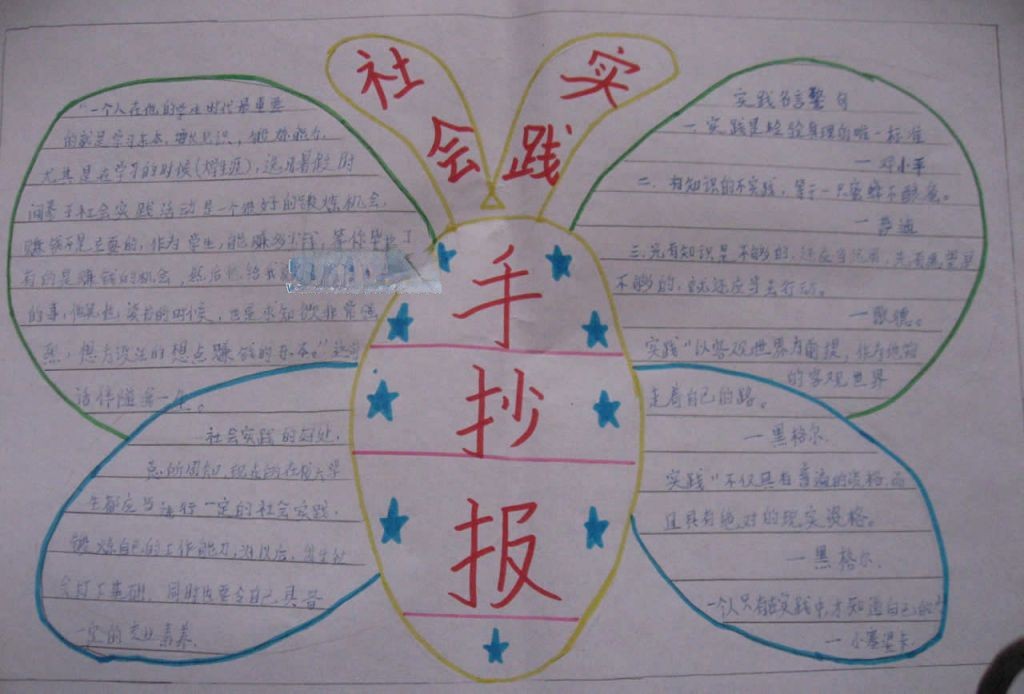 社会
实践
手
抄
报
"一个人在他的学生时代最重要
的就是学习东西，增长见识，锻炼能力，
尤其是在学习的时候，选用暑假时
间参于社会实践活动是一个很好的锻炼机会，
赚钱不是主要的，作为学生，能赚多少钱，等你毕业了
有的是赚钱的机会，然后他给我
的事，他说他读书的时候，也是求知欲非常强
烈，想方设法的想点赚钱的东西。"
话伴随我一生。
社会实践的好处，
总所周知，现在的在校大学
生都应当进行一定的社会实践，
锻炼自己的工作能力，为以后
会打下基础，同时也要令自己具备
一定的专业素养。
实践名言警句
一、实践是检验真理的唯一标准
一邓小平
二、有知识的不实践，等于一只蜜蜂不酿蜜。
一普迪
三、光有知识是不够的，还应当运用，光有愿望是
不够的，就还应导去行动。
一歌德。
实践"以客观世界为前提，作为
的客观世界
走着自己的路。
一黑格尔.
实践"不仅具有普遍的资格，而
且具有绝对的现实资格。
一黑格尔.
一个人只有在实践中，才知道自己的
一小塞涅卡.